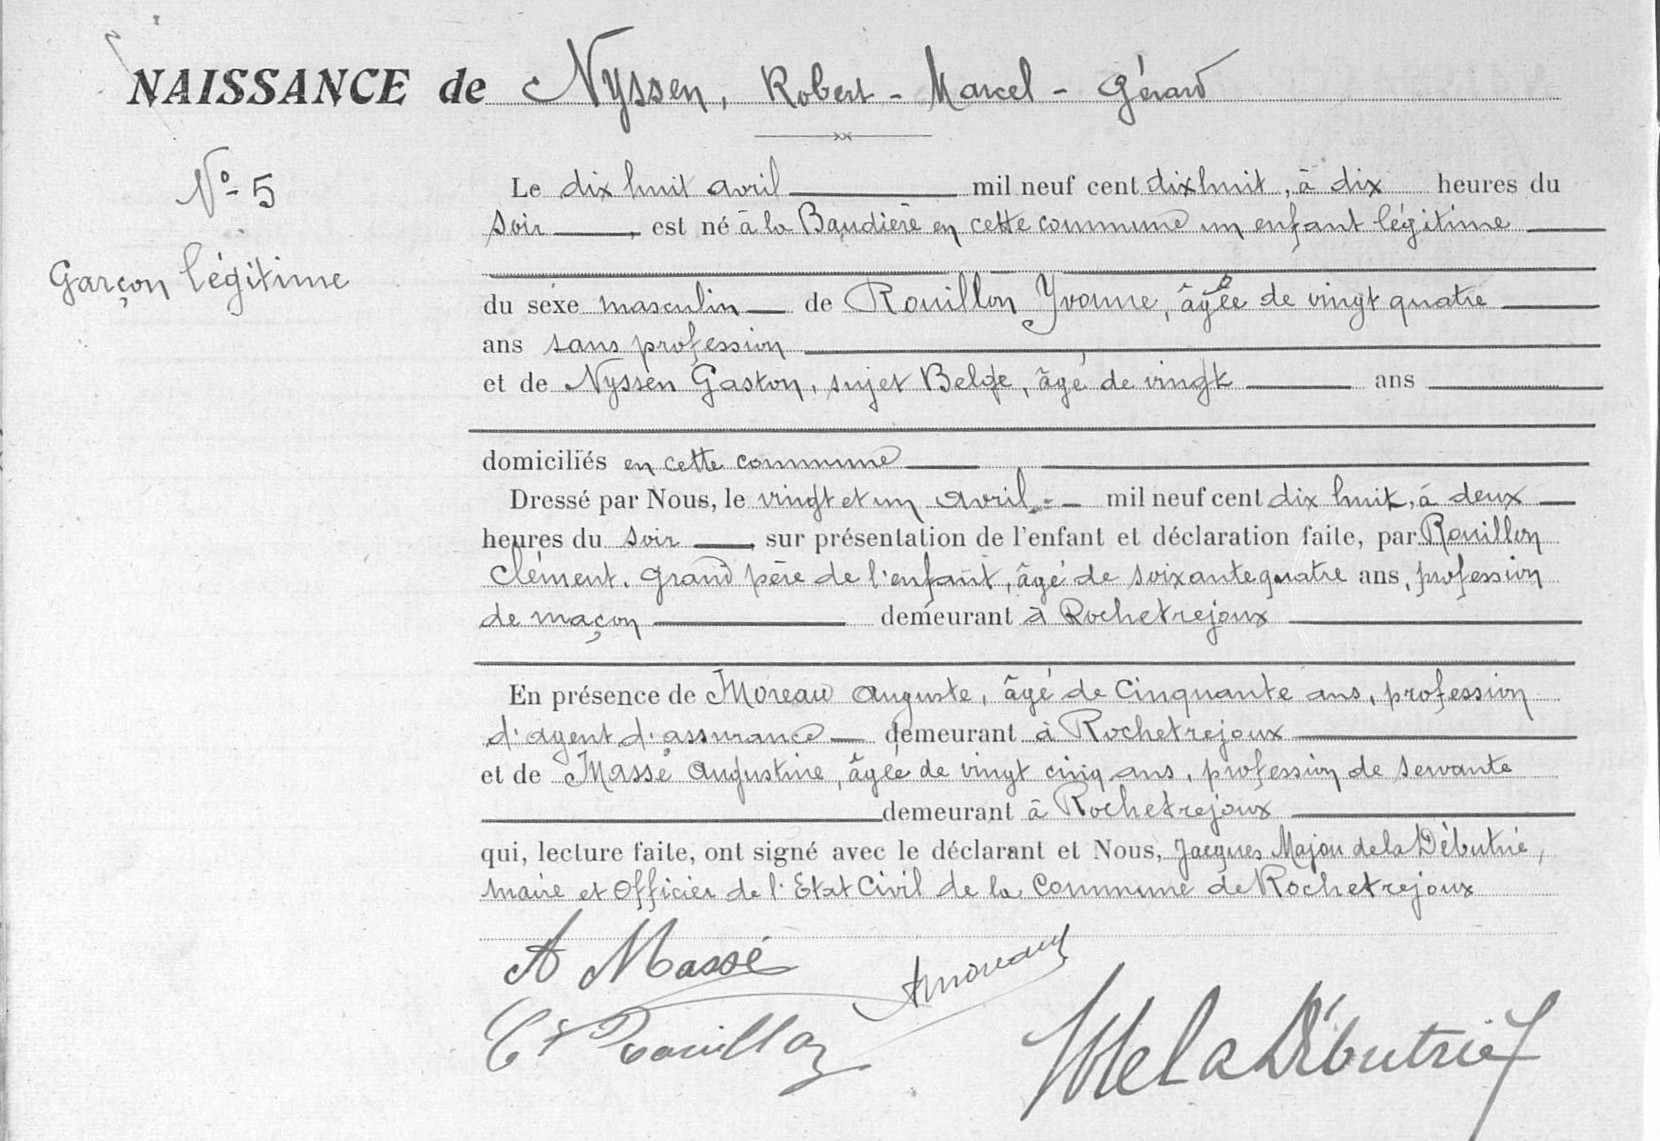 NAISSANCE de Nyssen, Robert - Marcel - Gérard
N° 5
Garçon légitime
Le dix huit avril mil neuf cent dix huit, à dix heures du
soir, est né à la Baudière en cette commune un enfant légitime
du sexe masculin de Rouillon Yvonne, âgée de vingt quatre
ans sans profession
et de Nyssen Gaston, sujet Belge, âgé de vingt ans
domiciliés en cette commune
Dressé par Nous, le vingt et un avril mil neuf cent dix huit, à deux
heures du soir, sur présentation de l'enfant et déclaration faite, par Rouillon
Clément, grand père de l'enfant, âgé de soixante quatre ans, profession
de maçon demeurant à Rochetrejoux
En présence de Moreau Auguste, âgé de cinquante ans, profession
d'agent d'assurance demeurant à Rochetrejoux
et de Massé Augustine, âgée de vingt cinq ans, profession de servante
demeurant à Rochetrejoux
qui, lecture faite, ont signé avec le déclarant et Nous, Jacques Majou de la Débutrie,
maire et Officier de l'Etat Civil de la Commune de Rochetrejoux
A Massé
A Moreau
Ct Rouillon
M de la Débutrie